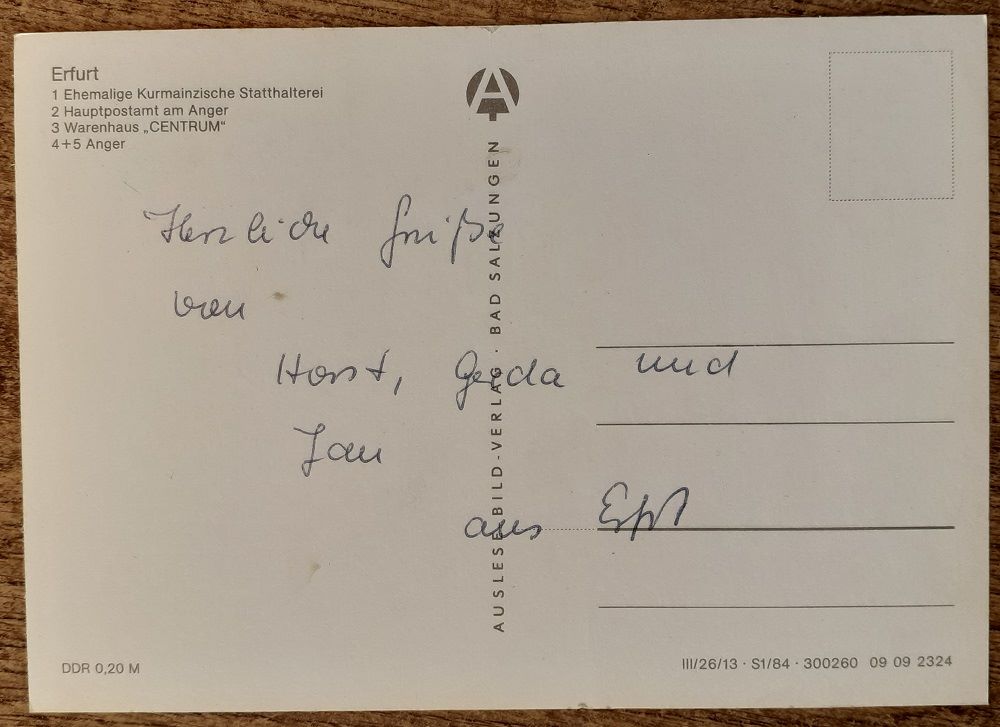 Erfurt
1 Ehemalige Kurmainzische Statthalterei
2 Hauptpostamt am Anger
3 Warenhaus „CENTRUM“
4+5 Anger
A
AUSLESE-BILD-VERLAG · BAD SALZUNGEN
Herzliche Grüße
von
Horst, Gerda und
Jan
aus Erft
DDR 0,20 M
III/26/13 · S1/84 · 300260 09 09 2324